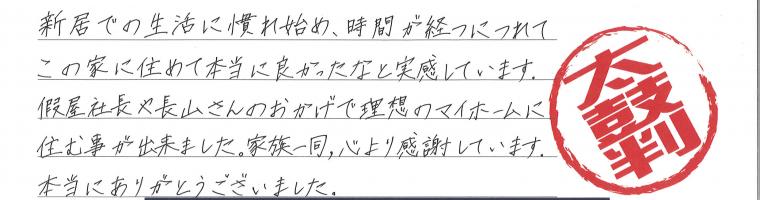 新居での生活に慣れ始め、時間が経つにつれて
この家に住めて本当に良かったなと実感しています.
假屋社長や長山さんのおかげで理想のマイホームに
住む事が出来ました。家族一同,心より感謝しています.
本当にありがとうございました.
太鼓判